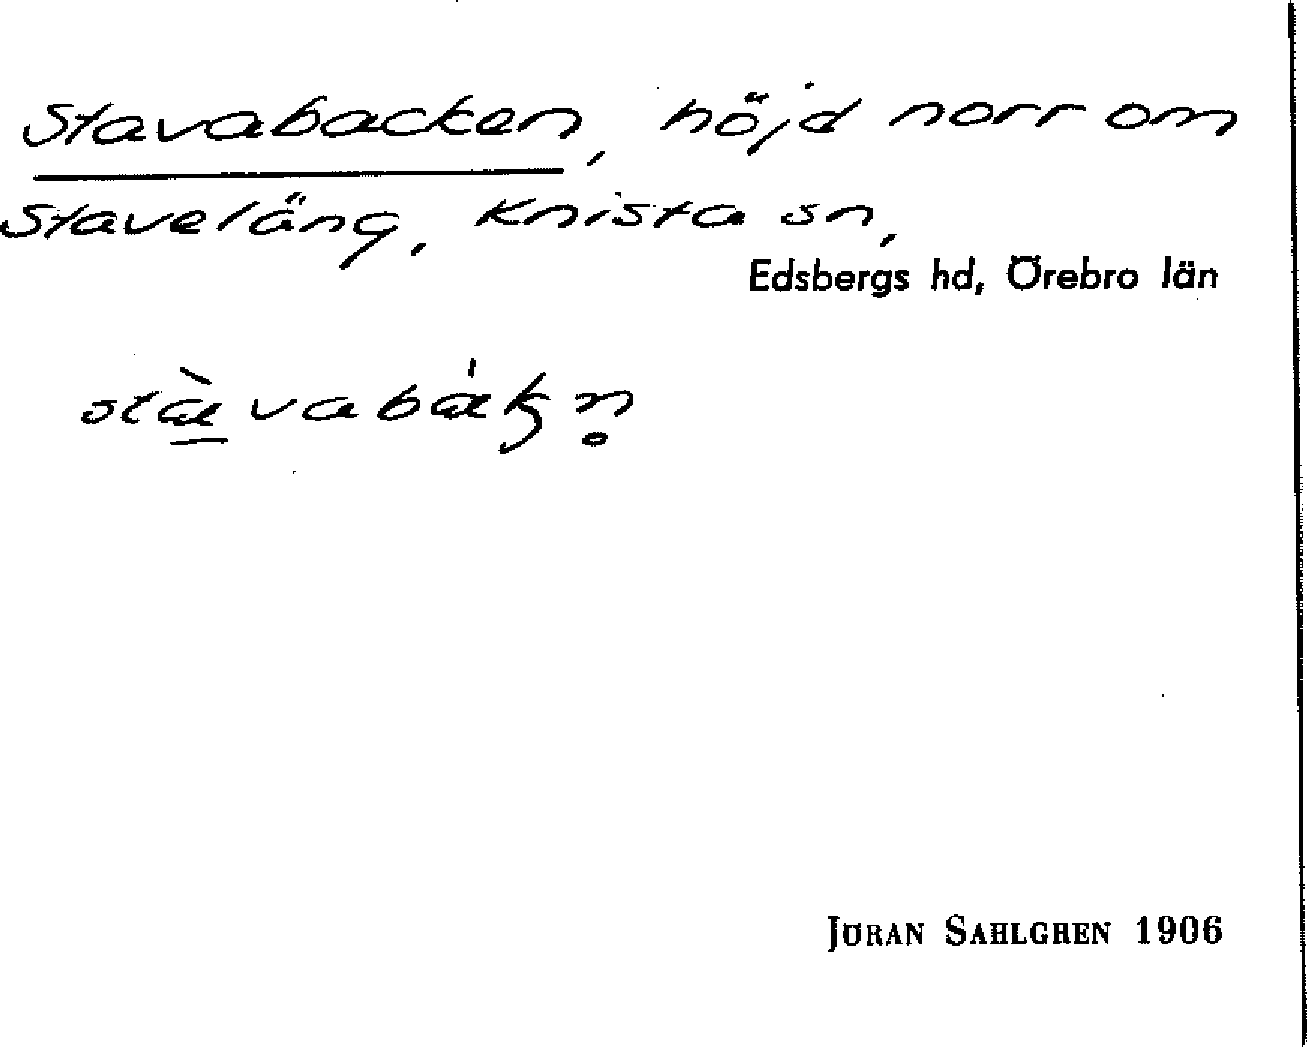 Stavabacken, höjd norr om
Staveläng, Knista sn,
Edsbergs hd, Örebro län
stàvabákn̥
JÖRAN SAHLGREN 1906